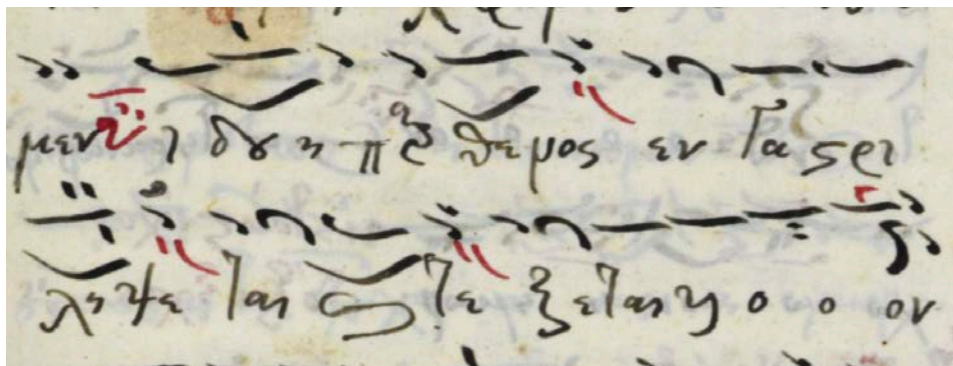 μεν ι δου η παρ θε νος εν γα ϛρι
λη ψε ται ϗ τε ξε ται υι ο ο ον